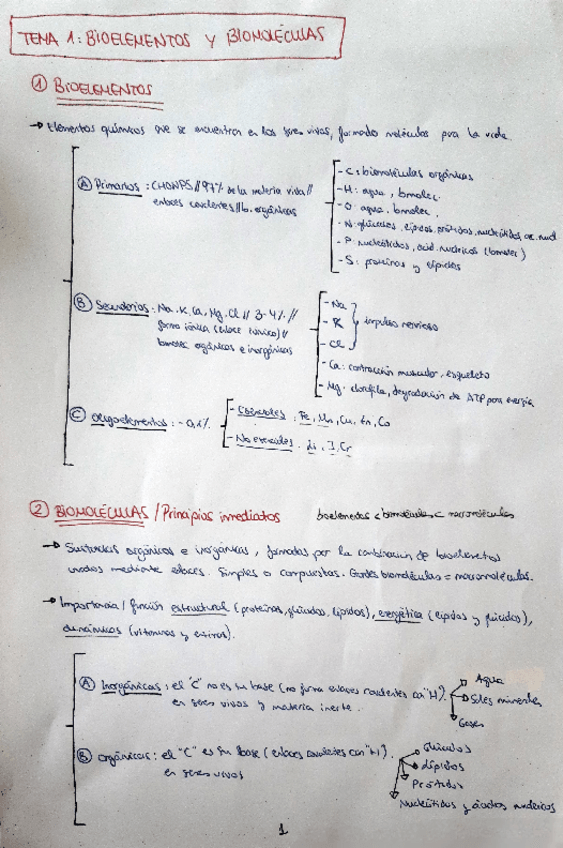 TEMA 1: BIOELEMENTOS Y BIOMOLÉCULAS
① BIOELEMENTOS
→ Elementos químicos que se encuentran en los seres vivos, formando moléculas para la vida.
Ⓐ Primarios: CHONPS // 97% de la materia viva //
enlaces covalentes // b. orgánicas
- C: biomoléculas orgánicas
- H: agua, biomolec.
- O: agua, biomolec.
- N: glúcidos, lípidos, prótidos, nucleótidos, ac. nucl
- P: nucleótidos, acid. nucleicos (biomolec)
- S: proteínas y lípidos
Ⓑ Secundarios: Na, K, Ca, Mg, Cl // 3-4% //
forma iónica (enlace iónico) //
biomolec orgánicas e inorgánicas
- Na
- K
- Cl
impulso nervioso
- Ca: contracción muscular, esqueleto
- Mg: clorofila, degradación de ATP para energía
Ⓒ Oligoelementos: -0,1%
- Esenciales: Fe, Mn, Cu, Zn, Co
- No esenciales: Li, I, Cr
② BIOMOLÉCULAS / Principios inmediatos
bioelementos < biomoléculas < macromoléculas
→ Sustancias orgánicas e inorgánicas, formadas por la combinación de bioelementos
unidos mediante enlaces. Simples o compuestas. Grandes biomoléculas = macromoléculas.
→ Importancia / función estructural (proteínas, glúcidos, lípidos), energética (lípidos y glúcidos),
dinámicas (vitaminas y enzimas).
Ⓐ Inorgánicas: el "C" no es su base (no forma enlaces covalentes con "H").
en seres vivos y materia inerte.
Agua
Sales minerales
Gases
Ⓑ Orgánicas: el "C" es su base (enlaces covalentes con "H").
en seres vivos
Glúcidos
Lípidos
Prótidos
Nucleótidos y ácidos nucleicos
1